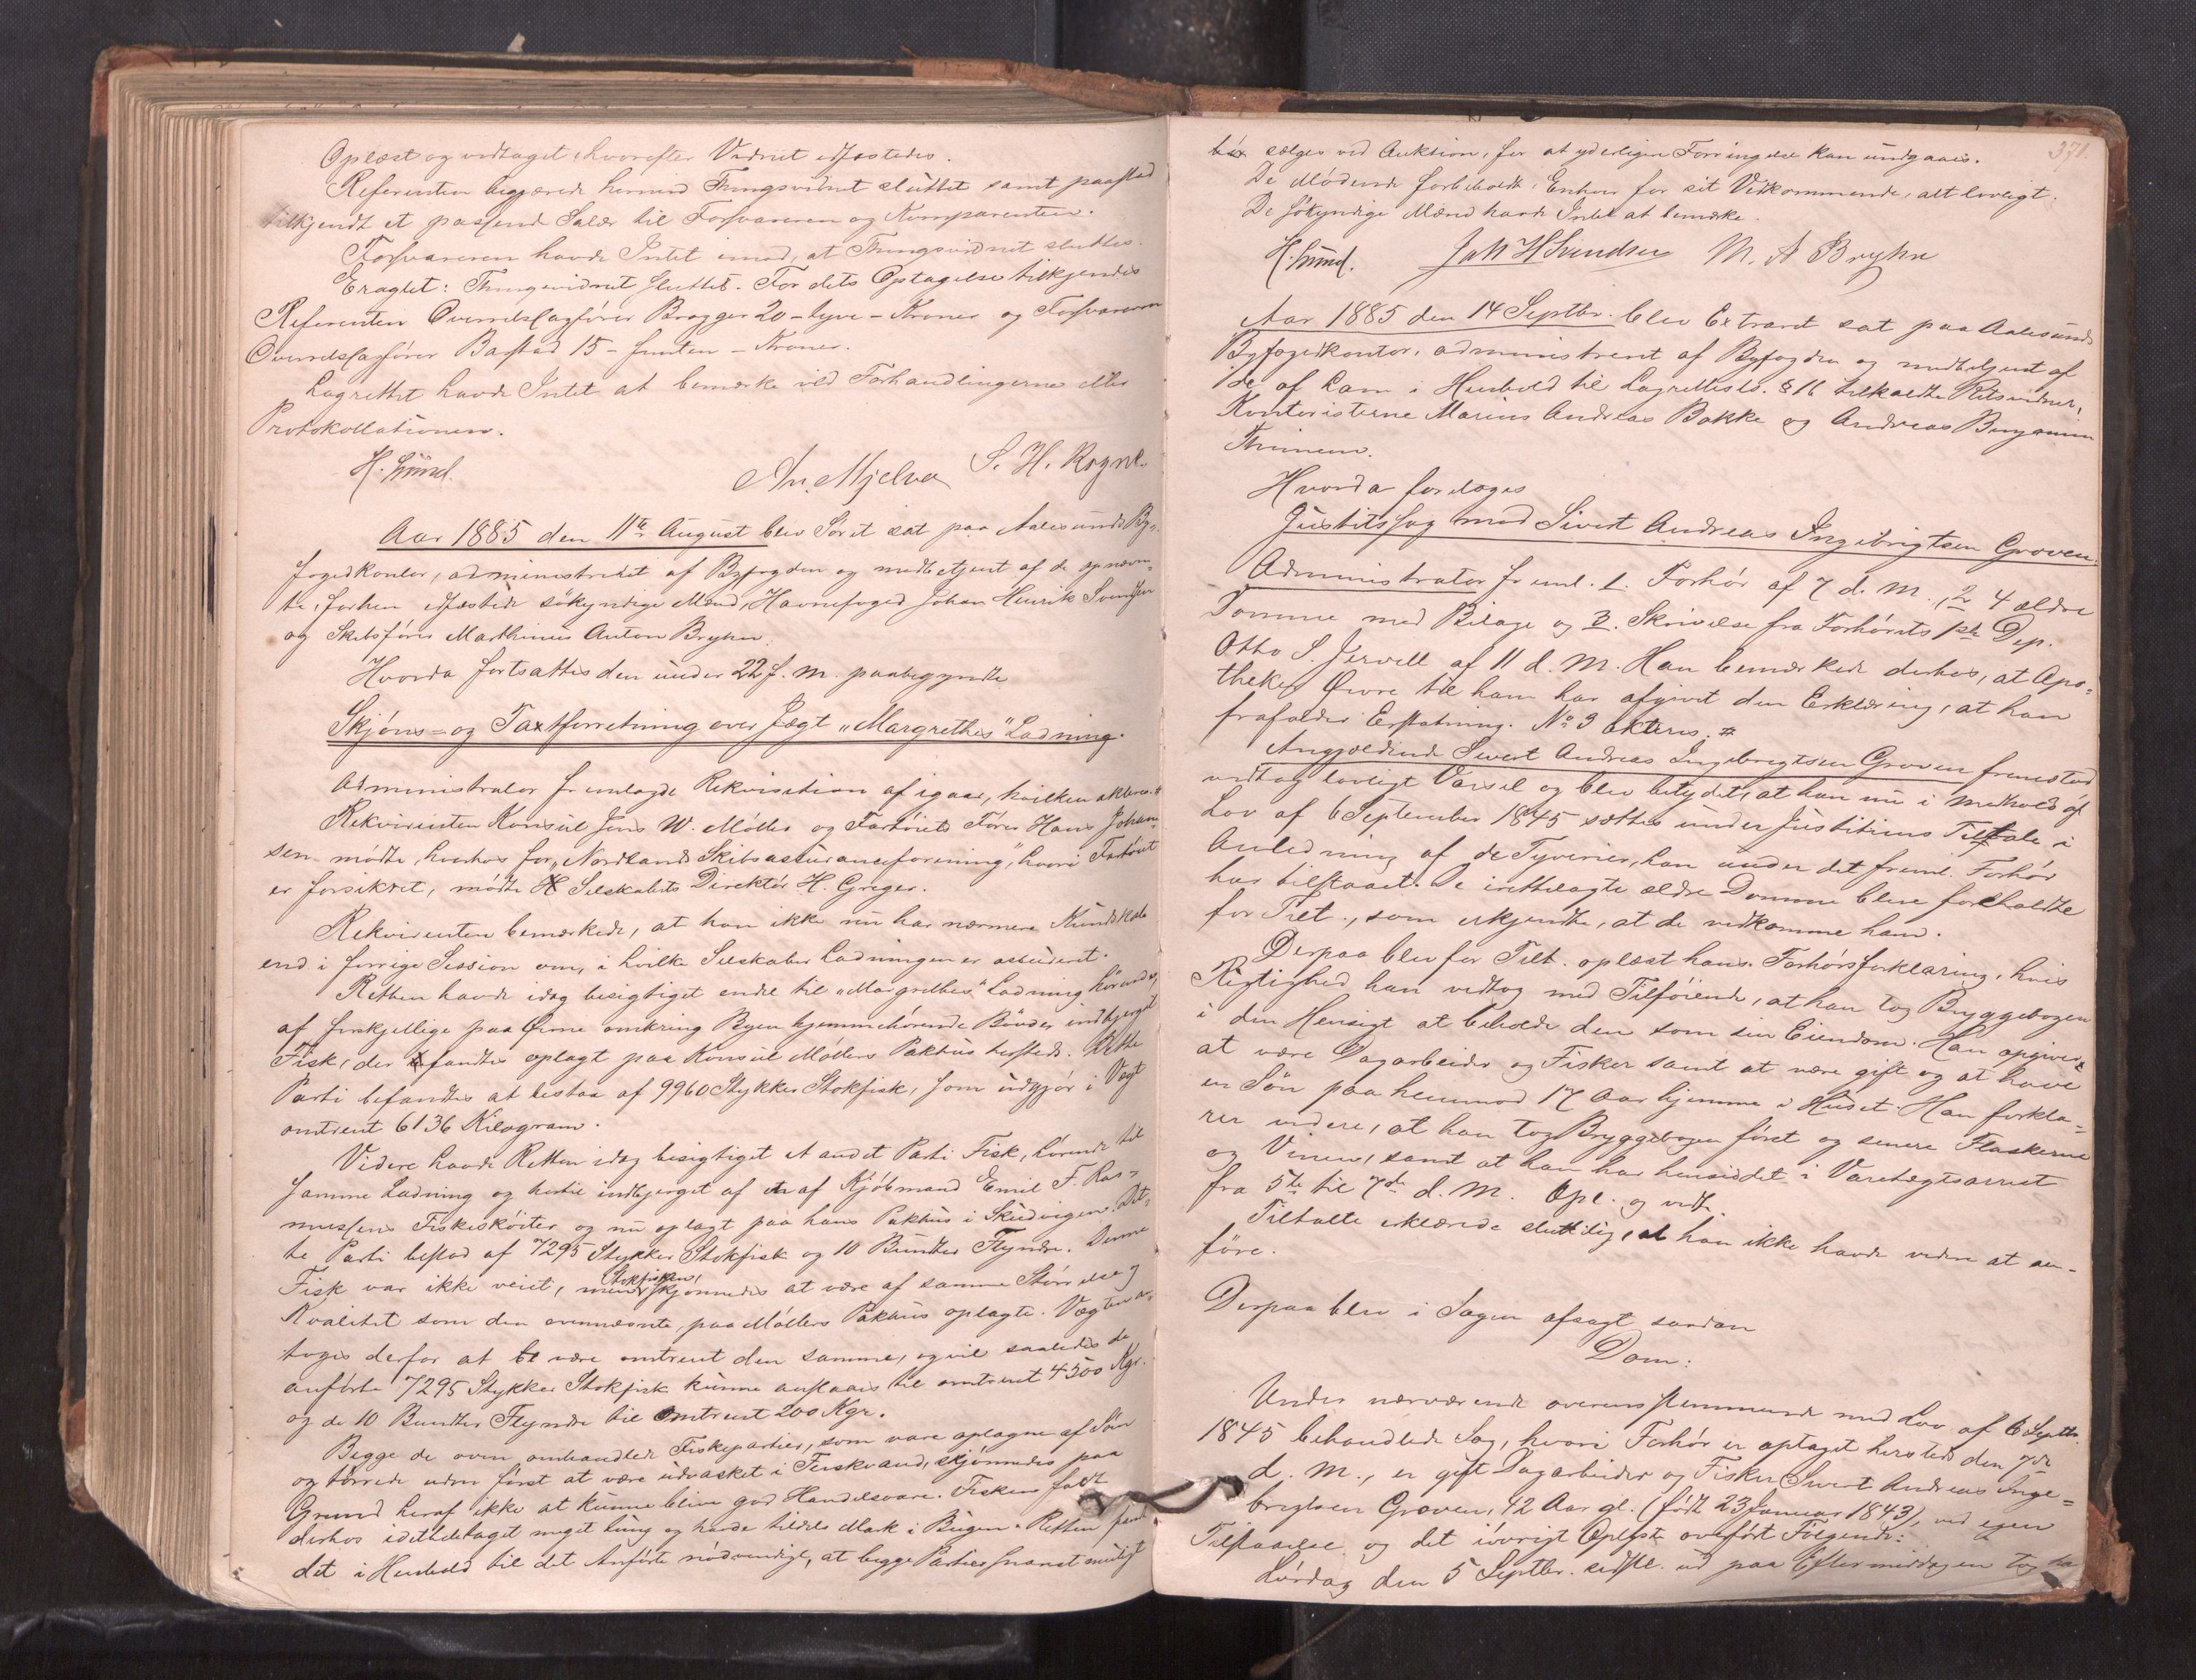 Oplæst og vedtaget, hvorefter Vidnet edfæstedes.
Referenten begjærede hermed Thingsvidnet sluttet samt paastod
tilkjendt et passende Salær til Forsvareren og Komparenten.
Forsvareren havde Intet imod, at Thingsvidnet sluttes.
Eragtet: Thingsvidnet sluttet. For dets Optagelse tilkjendes
Referenten Overretssagfører Brøgger 20 - tyve - Kroner og Forsvareren
Overretssagfører Bastad 15 - femten - Kroner.
Lagrettet havde Intet at bemærke ved Forhandlingerne eller
Protokollationen.
H. Lund. An. Mjelva S. H. Rogne
Aar 1885 den 11te August blev Søret sat paa Aalesunds By-
fogedkontor, administreret af Byfogden og medbetjent af de opnævn-
te, forhen edfæstede søkyndige Mænd, Havnefoged Johan Henrik Svendsen
og Skibsfører Marthinus Anton Bryhn.
Hvorda fortsattes den under 22 f. M. paabegyndte
Skjøns- og Taxtforretning over Jægt "Margrethes" Ladning.
Administrator fremlagde Rekvisition af igaar, hvilken akteres.
Rekvirenten Konsul Jens W. Møller og Fartøiets Fører Hans Johan-
sen mødte, hvorhos for "Nordlands Skibsassuranceforening", hvori Fartøiet
er forsikret, mødte Selskabets Direktør H. Greger.
Rekvirenten bemærkede, at han ikke nu har nærmere Kundskab
end i forrige Session om, i hvilke Selskaber Ladningen er assureret.
Retten havde idag besigtiget endel til "Margrethes" Ladning hørende,
af forskjellige paa Øerne omkring Byen hjemmehørende Bønder indbjerget
Fisk, der fandtes oplagt paa Konsul Møllers Pakhus hersteds. Dette
Parti befandtes at bestaa af 9960 Stykker Stokfisk, som udgjør i Vægt
omtrent 6136 Kilogram.
Videre havde Retten idag besigtiget et andet Parti Fisk, hørende til
samme Ladning og hertil indbjerget af en af Kjøbmand Emil F. Ras-
mussens Fiskeskøiter og nu oplagt paa hans Pakhus i Skudvigen. Det-
te Parti bestod af 7295 Stykker Stokfisk og 10 Bundter Flyndre. Denne
Fisk var ikke veiet, men Stokfisken skjønnedes at være af samme Størrelse og
Kvalitet som den ovennævnte, paa Møllers Pakhus oplagte. Vægten an-
toges derfor at være omtrent den samme, og vil saaledes de
anførte 7295 Stykker Stokfisk kunne anslaaes til omtrent 4500 Kgr.
og de 10 Bundter Flyndre til omtrent 200 Kgr.
Begge de oven omhandlede Fiskepartier, som vare optagne af Søen
og tørrede uden først at være udvasket i Ferskvand, skjønnedes paa
Grund heraf ikke at kunne blive god Handelsvare. Fisken faldt
derhos idethele taget meget tung og havde tildels Mak i Bugen. Retten fandt
det i Henhold til det Anførte nødvendigt, at begge Partier snarest muligt
371.
bør sælges ved Auktion, for at yderligere Forringelse kan undgaaes.
De Mødende forbeholdt, Enhver for sit Vedkommende, alt lovligt.
De søkyndige Mænd havde Intet at bemærke.
H. Lund. Joh H Svendsen M. A Bryhn
Aar 1885 den 14 Septbr. blev Extraret sat paa Aalesunds
Byfogedkontor, administreret af Byfogden og medbetjent af
de af ham i Henhold til Lagretteslov. § 16 tilkaldte Retsvidner,
Kontoristerne Marius Andreas Bakke og Andreas Benjamin
Hvorda foretoges
Justitssag mod Sivert Andreas Ingebrigtsen Groven.
Administrator freml. 1. Forhør af 7 d. M., 2 4 ældre
Domme med Bilage og 3. Skrivelse fra Forhørets 1ste Dep.
Otto S. Jervell af 11 d. M. Han bemærkede derhos, at Apo-
theker Øwre til ham har afgivet den Erklæring, at han
frafalder Erstatning. No 3 akteres.
Angjældende Sivert Andreas Ingebrigtsen Groven fremstod
vedtog lovligt Varsel og blev betydet, at han nu i Medhold af
Lov af 6 September 1845 sættes under Justitiens Tiltale i
Anledning af de Tyverier, han under det freml. Forhør
har tilstaaet. De irettelagte ældre Domme bleve foreholdte
for Tilt., som erkjendte, at de vedkomme ham.
Derpaa blev for Tilt. oplæst hans Forhørsforklaring, hvis
Rigtighed han vedtog med Tilføiende, at han tog Bryggebogen
i den Hensigt at beholde den som sin Eiendom. Han opgiver
at være Dagarbeider og Fisker samt at være gift og at have
en Søn paa henimod 17 Aar hjemme i Huset. Han forkla-
rer videre, at han tog Bryggebogen først og senere Flaskerne
og Vinen, samt at han har hensiddet i Varetægtsarrest
fra 5te til 7de d. M. Opl. og vedt.
Tiltalte erklærede sluttelig, at han ikke havde videre at an-
føre.
Derpaa blev i Sagen afsagt saadan
Dom:
Under nærværende overensstemmende med Lov af 6 Septbr.
1845 behandlede Sag, hvori Forhør er optaget hersteds den 7de
d. M., er gift Dagarbeider og Fisker Sivert Andreas Inge-
brigtsen Groven, 42 Aar gl. (født 23 Januar 1843), ved egen
Tilstaaelse og det iøvrigt Oplyste overført Følgende:
Lørdag den 5 Septbr. sidstl. ud paa Eftermiddagen tog